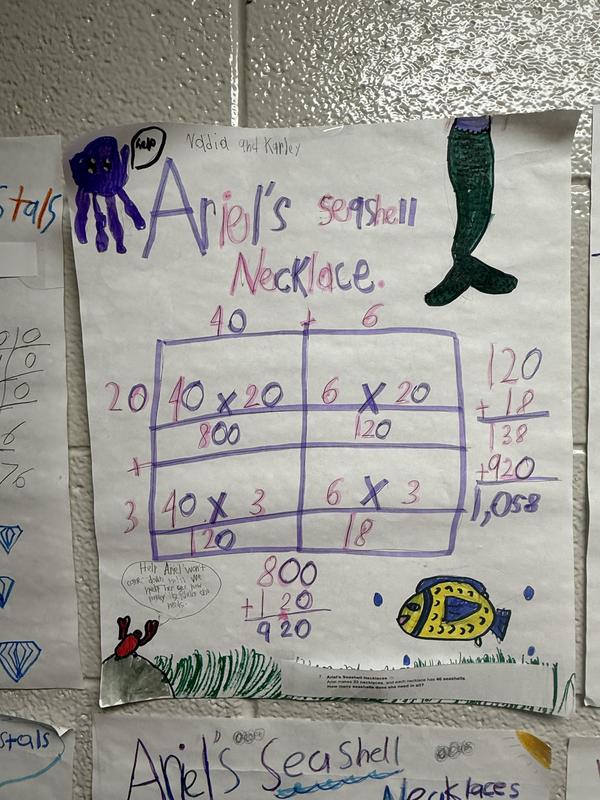 Help
Nadia and Karley
Ariel's seashell
Necklace.
40 + 6
20 40 x 20 6 x 20
800 120
+
3 40 x 3 6 x 3
120 18
120
+ 18
138
+920
1,058
800
+120
920
Help Ariel won't
come down until we
help her see how
many
needs.
Ariel's Seashell Necklaces
Ariel makes 23 necklaces, and each necklace has 46 seashells.
How many seashells does she need in all?
stals
stals
Ariel's SeaShell
Necklaces